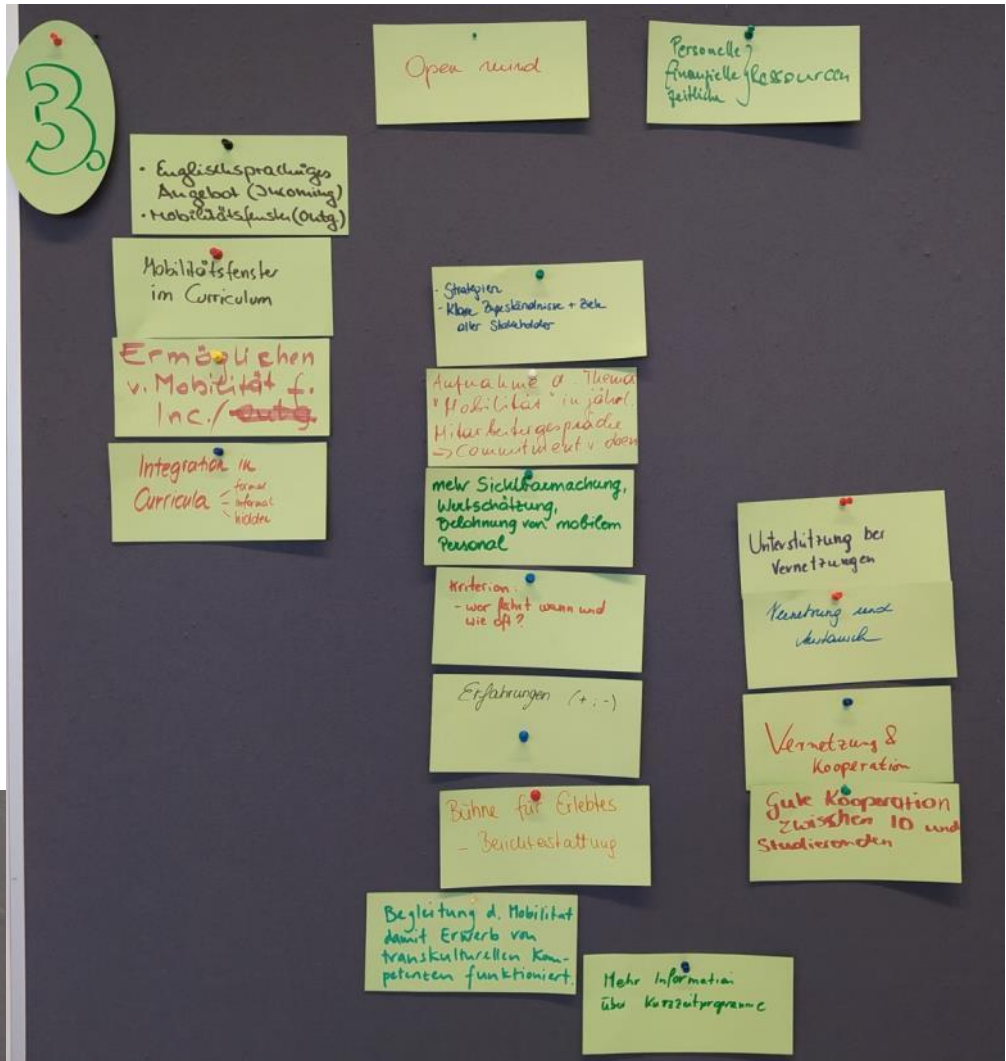 3.
Open mind
Personelle
finanzielle } Ressourcen
zeitliche
• Englischsprachiges
Angebot (Incoming)
• Mobilitätsfenster (Outg.)
Mobilitätsfenster
im Curriculum
Ermöglichen
v. Mobilität f.
Inc./ Outg.
Integration in
Curricula - formal
- informal
- hidden
- Strategien
- Klare Zugeständnisse + Ziele
aller Stakeholder
Aufnahme d. Thema
"Mobilität" in jährl.
Mitarbeitergespräche
-> Commitment v. oben
mehr Sichtbarmachung,
Wertschätzung,
Belohnung von mobilem
Personal
Kriterien:
- wer fährt wann und
wie oft?
Erfahrungen (+, -)
Bühne für Erlebtes
- Berichtestattung
Begleitung d. Mobilität
damit Erwerb von
transkulturellen Kom-
petenzen funktioniert.
Mehr Information
über Kurzzeitprogramme
Unterstützung bei
Vernetzungen
Vernetzung und
Austausch
Vernetzung &
Kooperation
Gute Kooperation
zwischen IO und
Studierenden